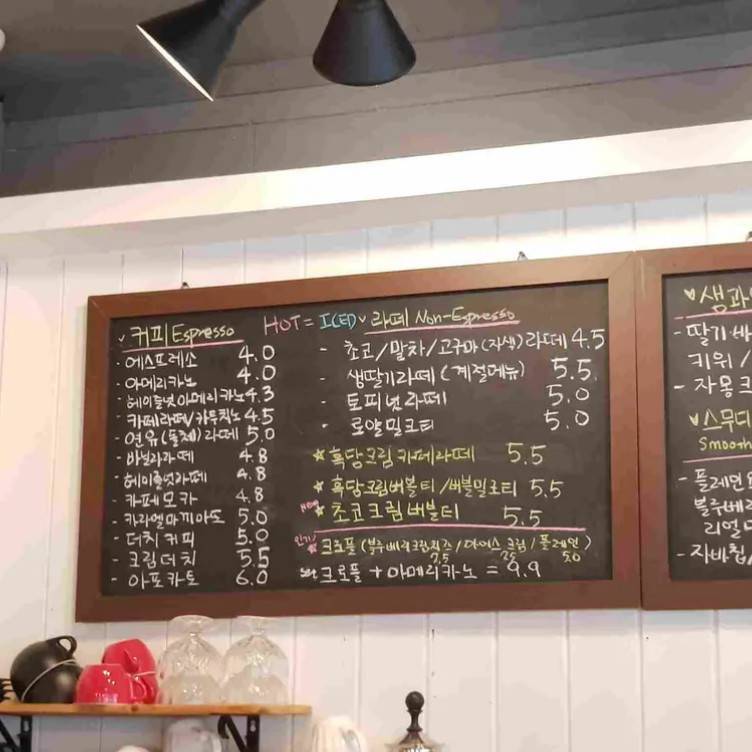 커피 Espresso
HOT = I(CED)
에스프레소 4.0
아메리카노 4.0
헤이즐넛아메리카노 4.3
카페라떼/카푸치노 4.5
연유(돌체)라떼 5.0
바닐라라떼 4.8
헤이즐넛라떼 4.8
카페모카 4.8
카라멜마끼아또 5.0
더치커피 5.0
크림더치 5.5
아포카토 6.0
라떼 Non-Espresso
초코/말차/고구마(자색)라떼 4.5
생딸기라떼(계절메뉴) 5.5
토피넛라떼 5.0
로얄밀크티 5.0
흑당크림카페라떼 5.5
흑당크림버블티/버블밀크티 5.5
NEW 초코크림버블티 5.5
인기! 크로플(블루베리크림치즈/아이스크림/플레인)
7.5 7.5 5.0
크로플+아메리카노 = 9.9
생과
딸기·바
키위/
자몽
스무디
Smooth
플레인
블루베리
리얼
자바칩/